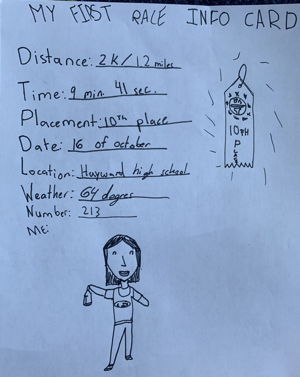 MY FIRST RACE INFO CARD
Distance: 2K/1.2 miles
Time: 9 min. 41 sec.
Placement: 10TH place
Date: 16 of october
Location: Hayward high school
Weather: 64 degres
Number: 213
ME:
10TH
PLACE